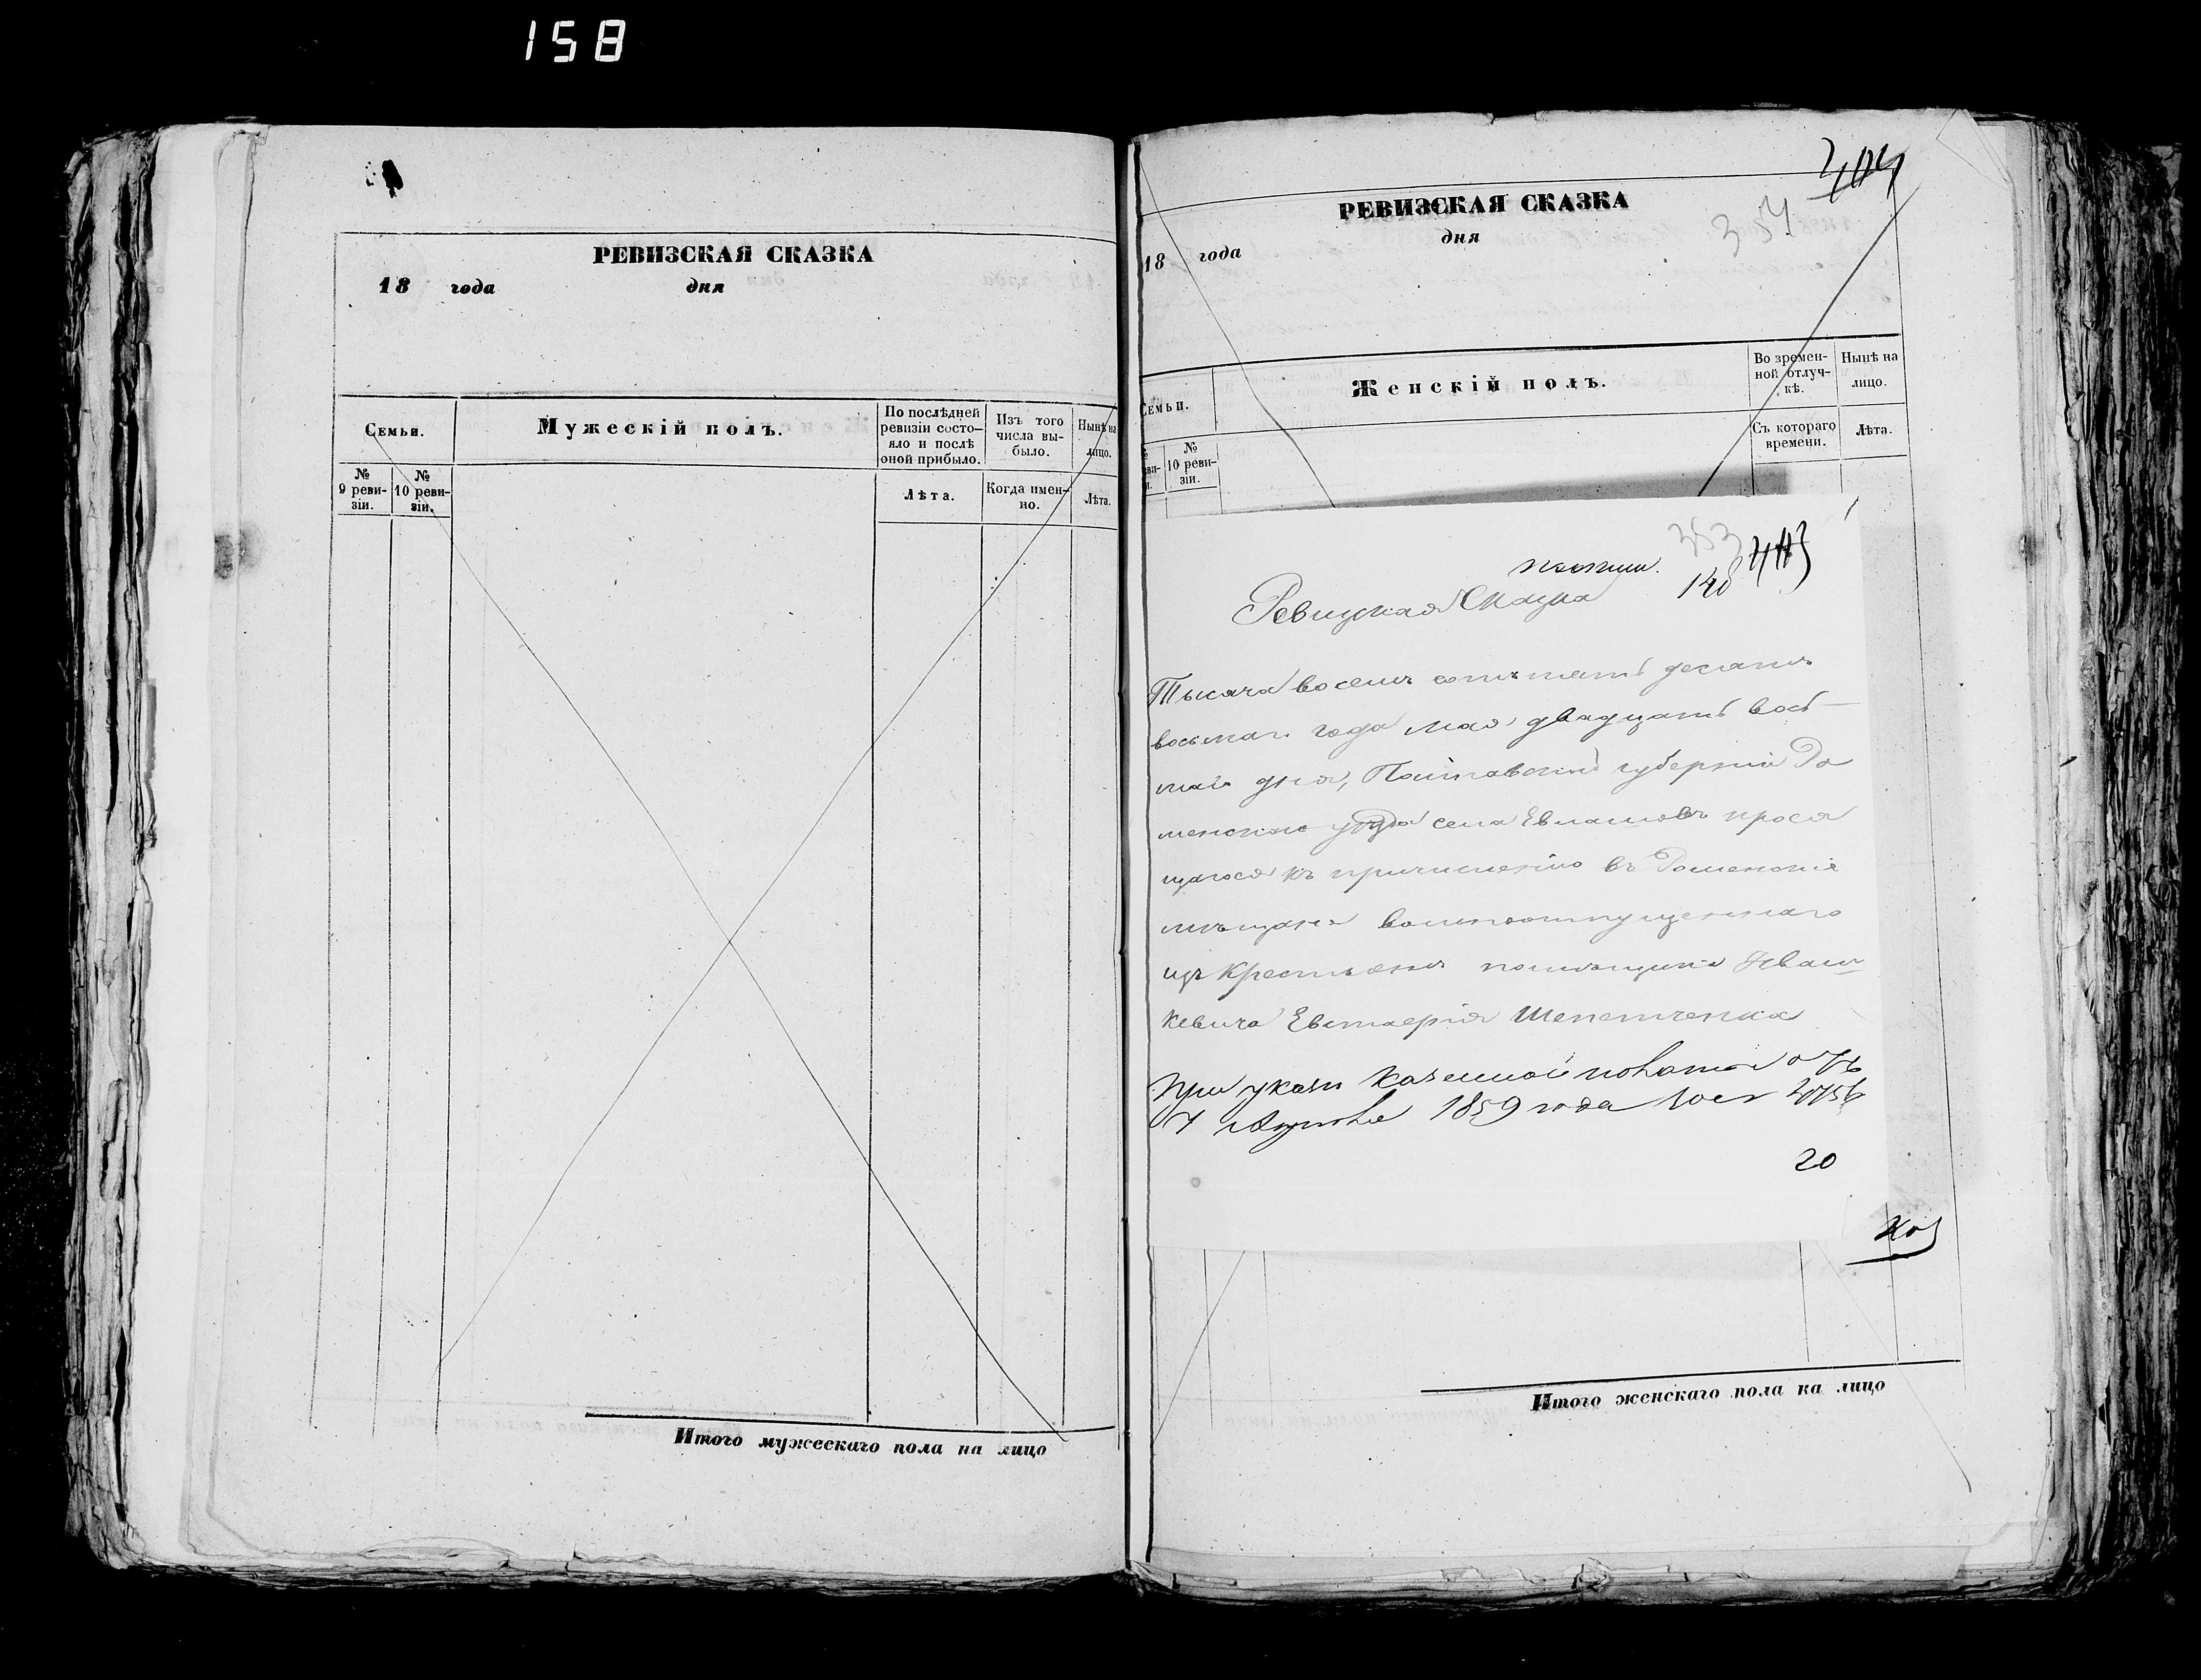 158
РЕВИЗСКАЯ СКАЗКА
18 года дня
Семьи.
Мужескій полъ.
По послѣдней ревизіи состо-
яло и послѣ
оной прибыло.
Изъ того
числа вы-
было.
Нынѣ на
лицо.
№
9 реви-
зіи.
№
10 реви-
зіи.
Лѣта.
Когда имен-
но.
Лѣта.
Итого мужескаго пола на лицо
404
354
РЕВИЗСКАЯ СКАЗКА
18 года дня
Семьи.
Женскій полъ.
Во времен-
ной отлуч-
кѣ.
Нынѣ на
лицо.
№
10 реви-
зіи.
Съ котораго
времени.
Лѣта.
353
403
148
Ревизская Сказка
Тысяча восемъ сотъ пятьдесятъ
восьмаго года мая двадцать вось-
маго дня, Полтавской губерніи Ро
менскаго уезда села Евлашовъ прося
щагося къ причисленію въ Роменскіе
мѣщане вольноотпущеннаго
изъ Крестьянъ помѣщика Иваш-
кевича Евстафія Шепетченка
При указѣ Казенной палаты отъ
1859 года
20
Итого женскаго пола на лицо